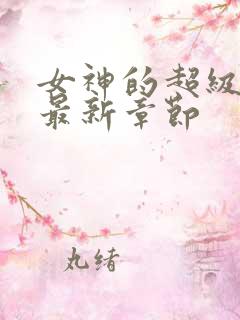 女神的超级
最新章节
丸绪